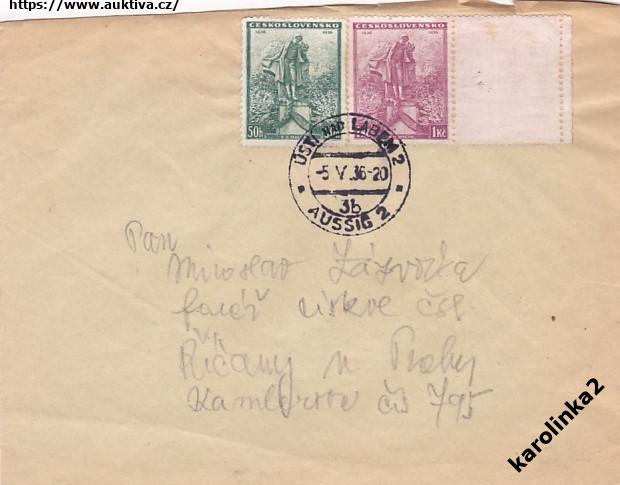 https://www.auktiva.cz/
ČESKOSLOVENSKO
1836 1936
50h
ČESKOSLOVENSKO
1836 1936
1Kč
ÚSTÍ NAD LABEM 2
-5 V.36-20
3b
AUSSIG 2
Pan
Miroslav
farář církve čsl.
Říčany u Prahy
čís 795
karolinka2